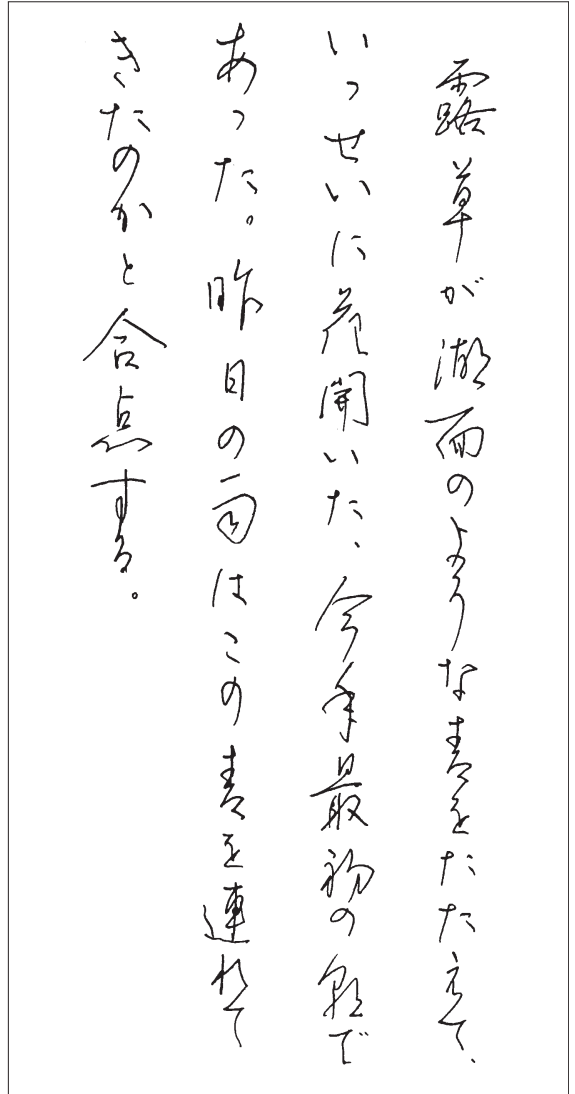 露草が湖面のような青をたたえて、
いっせいに花開いた、今年最初の朝で
あった。昨日の雨はこの青を連れて
きたのかと合点する。